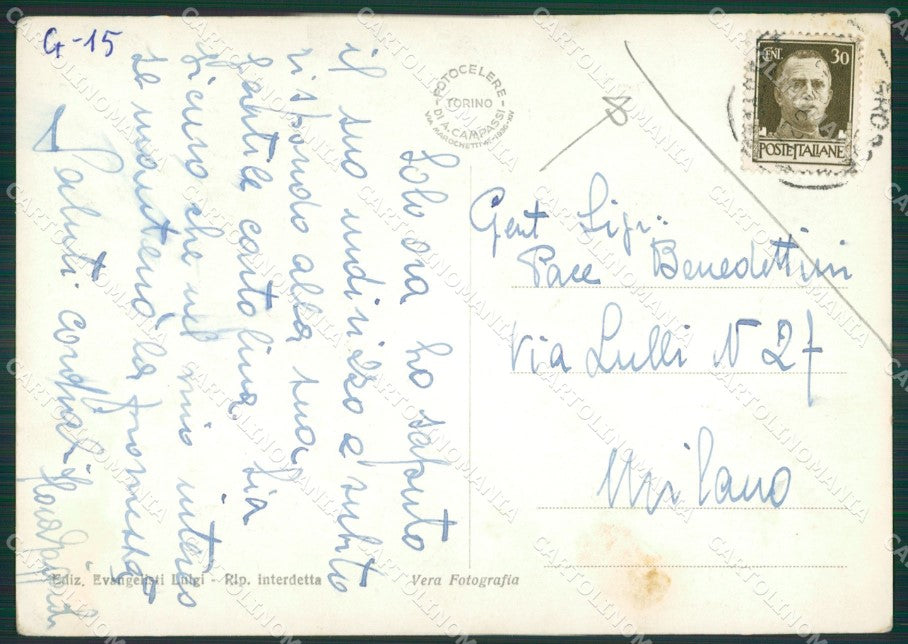 G-15
FOTOCELERE
TORINO
DI A. CAMPASSI
CENT. 30
POSTE ITALIANE
Solo ora ho saputo
il suo indirizzo e subito
rispondo alla sua
gentile cartolina. Sia
sicuro che nel mio interno
se manterrà la promessa
Saluti cordiali
Gent Sigr.
Pace Benedettini
Via Lulli N 27
Milano
Ediz. Evangelisti Luigi - Rip. interdetta
Vera Fotografia
CARTOLINOMANIA